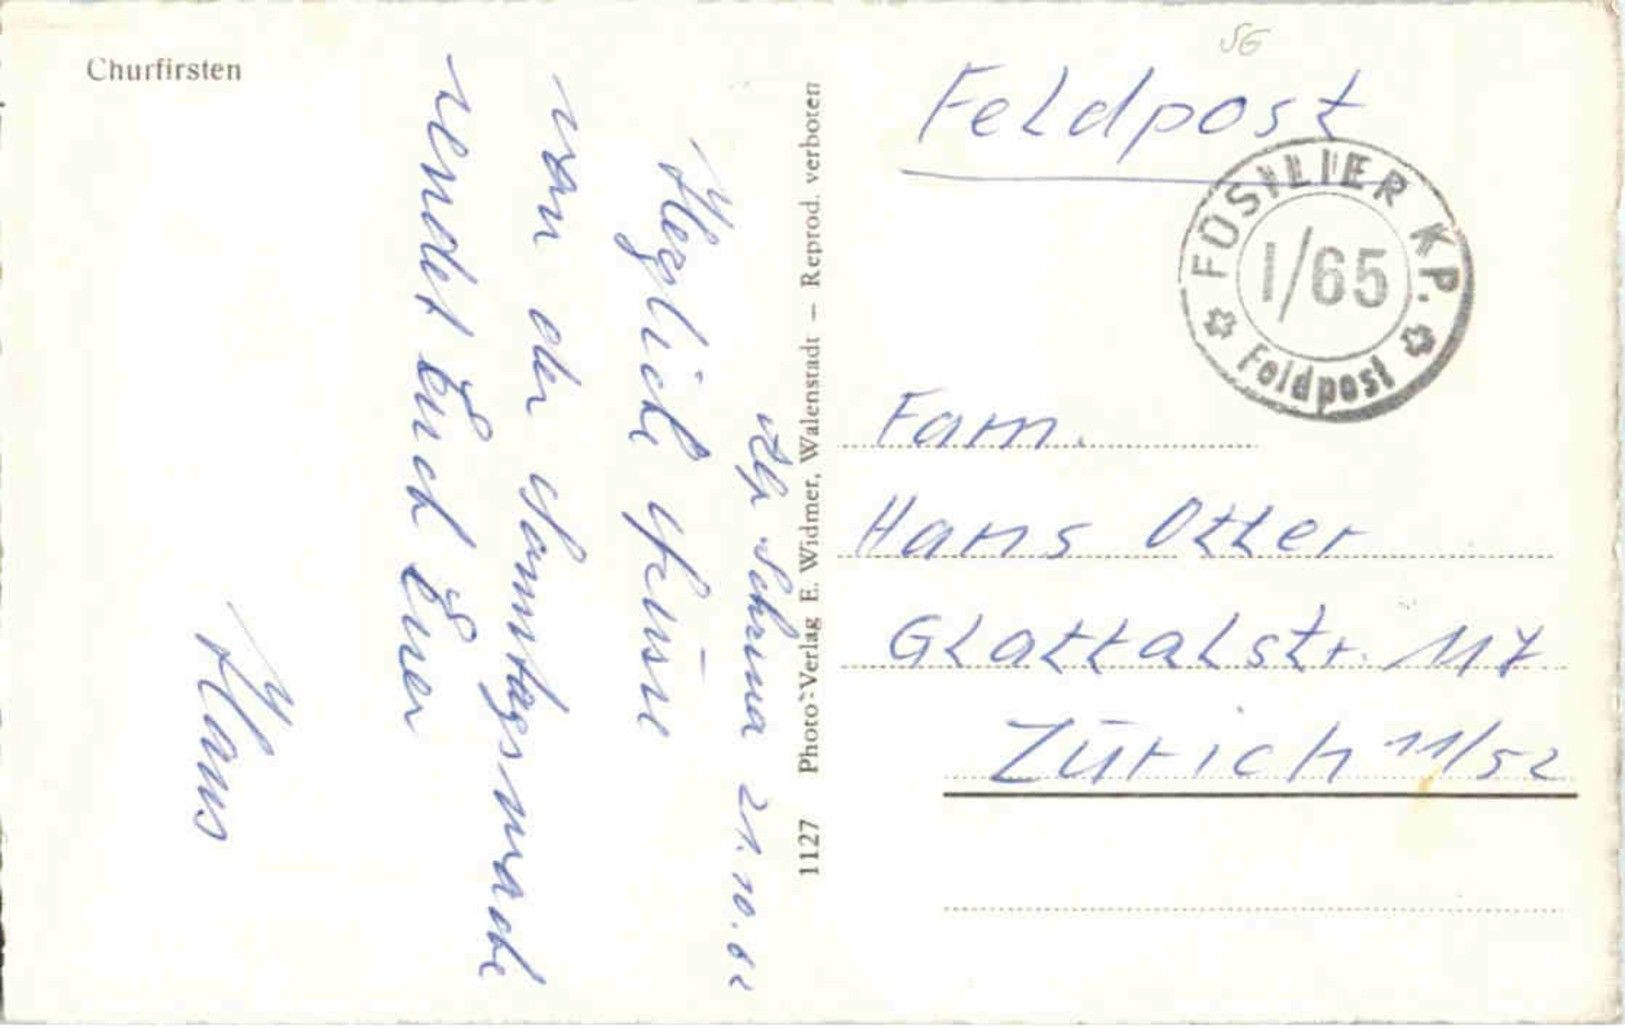 Churfirsten
Alp Schrina 21.10.62
Herzliche Grüsse
von der Sonntagswache
sendet Euch Euer
Hans
1127 Photo-Verlag E. Widmer, Walenstadt — Reprod. verboten
SG
Feldpost
FÜSILIER KP.
I/65
Feldpost
Fam.
Hans Otter
Glattalstr. 117
Zürich 11/52